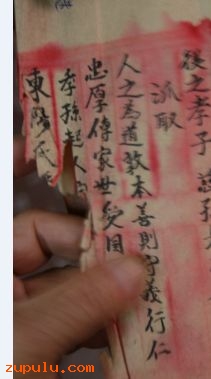 後之孝子慈孫
派取
人之為道敦本善則守義行仁
忠厚傳家世受國
孝孫起人
東陽氏
zupulu.com